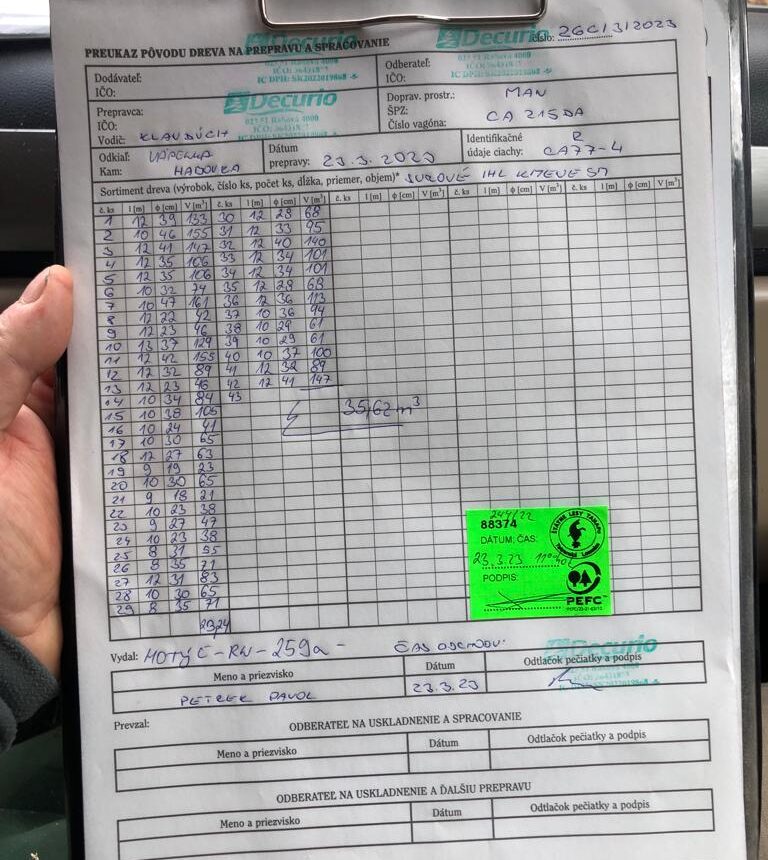 Decurio
Decurio
číslo: 26C/3/2023
PREUKAZ PÔVODU DREVA NA PREPRAVU A SPRACOVANIE
Dodávateľ:
IČO:
IC DPH: SK2022019868
Odberateľ:
IČO:
Decurio
027 51 Rabčová 1008
Prepravca:
IČO:
Vodič: KLAVDÚCH
Doprav. prostr.: MAN
ŠPZ: CA 215DA
Číslo vagóna:
Odkiaľ: VÁPENNÁ
Kam: HADOVKA
Dátum
prepravy: 23.3.2023
Identifikačné 2
údaje ciachy: CA77-4
Sortiment dreva (výrobok, číslo ks, počet ks, dĺžka, priemer, objem)* SUROVÉ IHL
č. ks l [m] ϕ [cm] V [m³] č. ks l [m] ϕ [cm] V [m³] č. ks l [m] ϕ [cm] V [m³] č. ks l [m] ϕ [cm] V [m³] č. ks l [m] ϕ [cm] V [m³]
1 12 39 133 30 12 28 68
2 10 46 155 31 12 33 95
3 12 41 147 32 12 40 140
4 12 35 106 33 12 34 101
5 12 35 106 34 12 34 101
6 10 32 74 35 12 28 68
7 10 47 161 36 12 36 113
8 12 22 42 37 10 36 94
9 12 23 46 38 10 29 61
10 13 37 129 39 10 29 61
11 12 42 155 40 10 37 100
12 12 32 89 41 12 32 89
13 12 23 46 42 12 41 147
14 10 34 84 43
15 10 38 105
35,62 m³
16 10 24 41
17 10 30 65
18 12 27 63
19 9 19 23
20 10 30 65
21 9 18 21
22 10 23 38
23 9 27 47
24 10 23 38
25 8 31 55
26 8 35 71
27 12 31 83
28 10 30 65
29 8 35 71
23,24
244/22
88374
DÁTUM; ČAS:
23.3.23
PODPIS:
ŠTÁTNE LESY TANAPU
PEFC™
Vydal: MOTYČ-RW-259a- ČAS ODCHODU:
Decurio
Meno a priezvisko Dátum Odtlačok pečiatky a podpis
PETREK PAVOL 23.3.23
Prevzal:
ODBERATEĽ NA USKLADNENIE A SPRACOVANIE
Meno a priezvisko Dátum Odtlačok pečiatky a podpis
ODBERATEĽ NA USKLADNENIE A ĎALŠIU PREPRAVU
Meno a priezvisko Dátum Odtlačok pečiatky a podpis